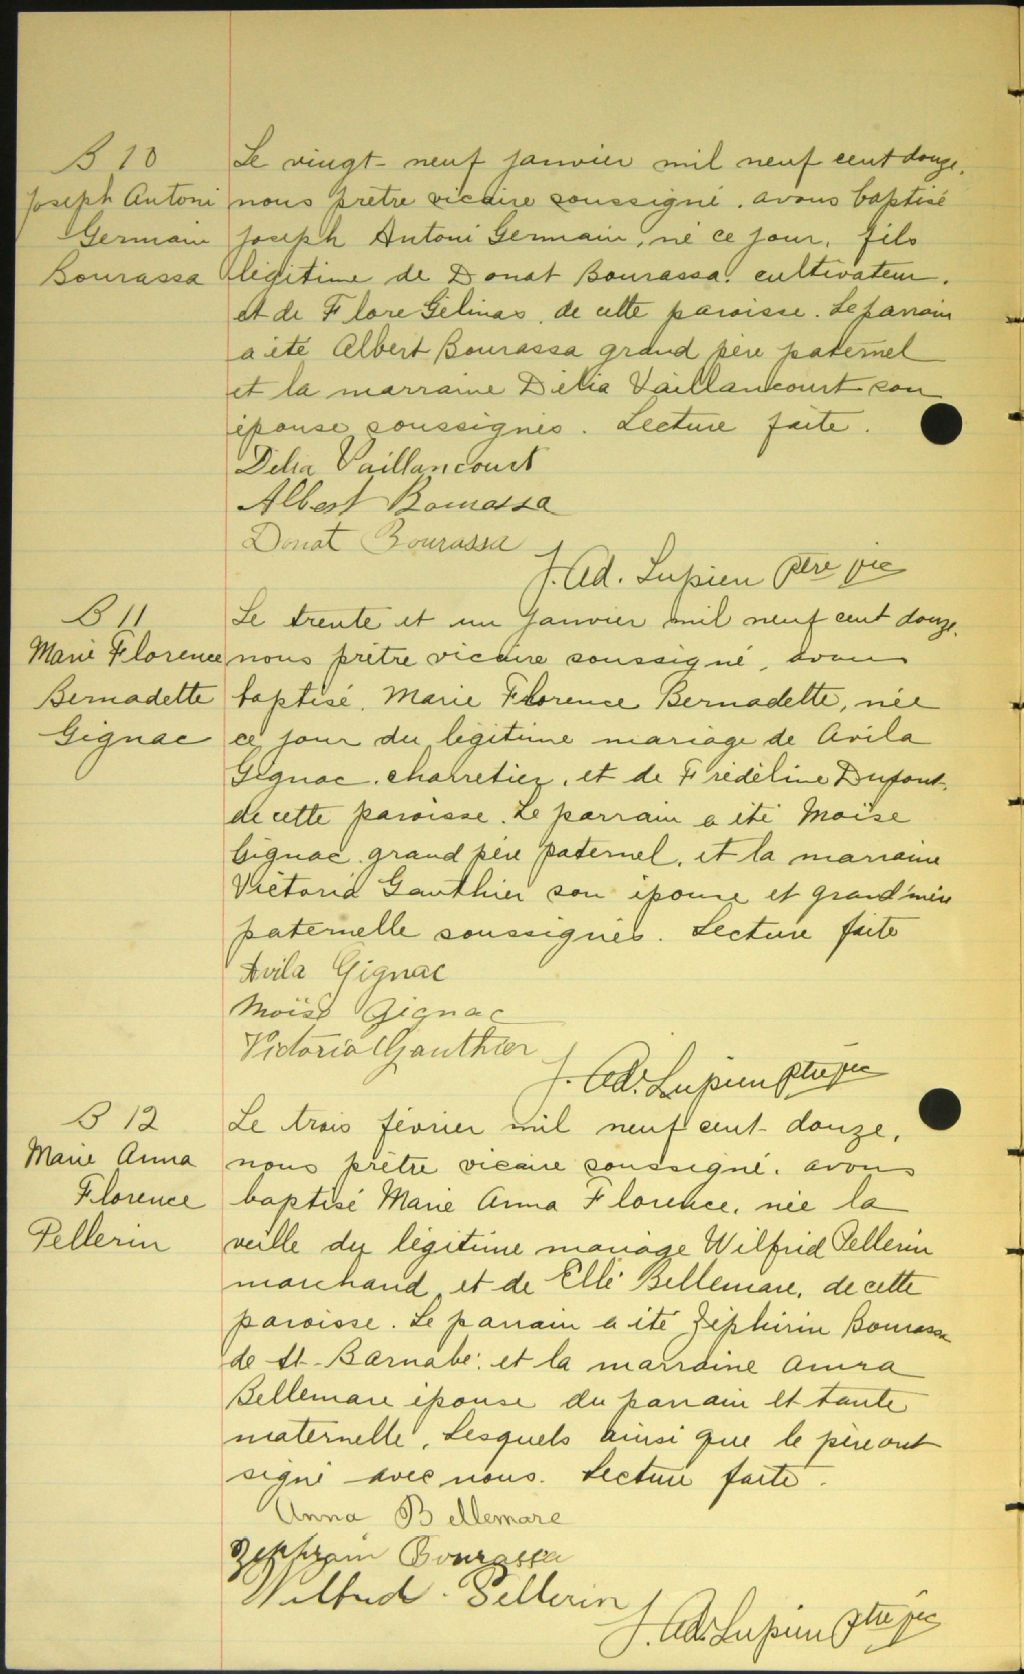 B 10
Joseph Antoni
Germain
Bourassa
Le vingt-neuf janvier mil neuf cent douze,
nous prêtre vicaire soussigné, avons baptisé
Joseph Antoni Germain, né ce jour, fils
légitime de Donat Bourassa, cultivateur,
et de Flore Gélinas, de cette paroisse. Le parrain
a été Albert Bourassa grand père paternel
et la marraine Délia Vaillancourt son
épouse soussignés. Lecture faite.
Délia Vaillancourt
Albert Bourassa
Donat Bourassa
J. Ad. Lupien ptre vic
B 11
Marie Florence
Bernadette
Gignac
Le trente et un janvier mil neuf cent douze,
nous prêtre vicaire soussigné, avons
baptisé, Marie Florence Bernadette, née
ce jour du légitime mariage de Avila
Gignac, charretier, et de Frédéline Dupont,
de cette paroisse. Le parrain a été Moïse
Gignac, grand père paternel, et la marraine
Victoria Gauthier son épouse et grand'mère
paternelle soussignés. Lecture faite
Avila Gignac
Moïse Gignac
Victoria Gauthier
J. Ad. Lupien ptre vic
B 12
Marie Anna
Florence
Pellerin
Le trois février mil neuf cent douze,
nous prêtre vicaire soussigné, avons
baptisé Marie Anna Florence, née la
veille du légitime mariage Wilfrid Pellerin
marchand, et de Ellé Bellemare, de cette
paroisse. Le parrain a été Zéphirin Bourassa
de St-Barnabé: et la marraine Anna
Bellemare épouse du parrain et tante
maternelle, Lesquels ainsi que le père ont
signé avec nous. Lecture faite.
Anna Bellemare
Zephirin Bourassa
Wilfrid Pellerin
J. Ad. Lupien ptre vic